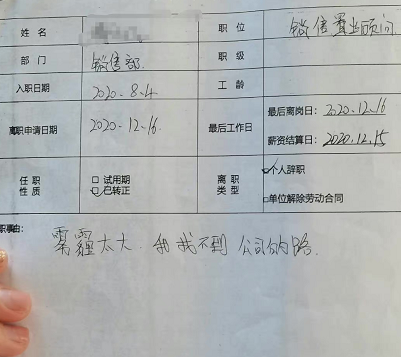 姓 名 职 位 销售置业顾问
部 门 销售部 职 级
入职日期 2020-8.4 工 龄
离职申请日期 2020-12-16 最后工作日 最后离岗日：2020.12.16
薪资结算日：2020.12.15
任 职 性 质 □ 试用期 离 职 类 型 □个人辞职
□ 已转正 □单位解除劳动合同
职事由：
雾霾太大.我找不到公司的路.